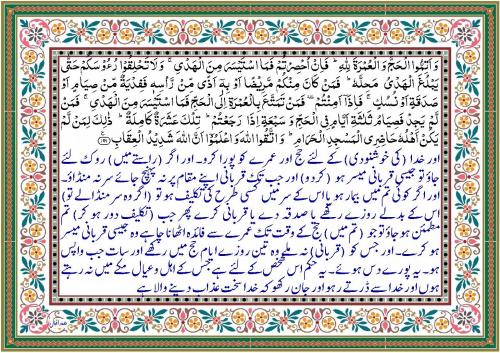 وَاَتِمُّوا الْحَجَّ وَالْعُمْرَةَ لِلّٰهِ ؕ فَاِنْ اُحْصِرْتُمْ فَمَا اسْتَيْسَرَ مِنَ الْهَدْيِ ۚ وَلَا تَحْلِقُوْا رُءُوْسَكُمْ حَتّٰى
يَبْلُغَ الْهَدْيُ مَحِلَّهٗ ؕ فَمَنْ كَانَ مِنْكُمْ مَّرِيْضًا اَوْ بِهٖۤ اَذًى مِّنْ رَّاْسِهٖ فَفِدْيَةٌ مِّنْ صِيَامٍ اَوْ
صَدَقَةٍ اَوْ نُسُكٍ ۚ فَاِذَاۤ اَمِنْتُمْ ٝ فَمَنْ تَمَتَّعَ بِالْعُمْرَةِ اِلَى الْحَجِّ فَمَا اسْتَيْسَرَ مِنَ الْهَدْيِ ۚ فَمَنْ
لَّمْ يَجِدْ فَصِيَامُ ثَلٰثَةِ اَيَّامٍ فِى الْحَجِّ وَسَبْعَةٍ اِذَا رَجَعْتُمْ ؕ تِلْكَ عَشَرَةٌ كَامِلَةٌ ؕ ذٰلِكَ لِمَنْ لَّمْ
يَكُنْ اَهْلُهٗ حَاضِرِى الْمَسْجِدِ الْحَرَامِ ؕ وَاتَّقُوا اللّٰهَ وَاعْلَمُوْۤا اَنَّ اللّٰهَ شَدِيْدُ الْعِقَابِ
اور خدا (کی خوشنودی) کے لئے حج اور عمرے کو پورا کرو۔ اور اگر (راستےمیں) روک لئے
جاؤ تو جیسی قربانی میسر ہو (کردو) اور جب تک قربانی اپنے مقام پر نہ پہنچ جائے سر نہ منڈاؤ۔
اور اگر کوئی تم میں بیمار ہو یا اس کے سر میں کسی طرح کی تکلیف ہو تو (اگر وہ سر منڈالے تو)
اس کے بدلے روزے رکھے یا صدقہ دے یا قربانی کرے پھر جب (تکلیف دور ہو کر) تم
مطمئن ہوجاؤ تو جو (تم میں) حج کے وقت تک عمرے سے فائدہ اٹھانا چاہے وہ جیسی قربانی میسر
ہو کرے۔ اور جس کو (قربانی) نہ ملے وہ تین روزے ایام حج میں رکھے اور سات جب واپس
ہو۔ یہ پورے دس ہوئے۔ یہ حکم اس شخص کے لئے ہے جس کے اہل وعیال مکے میں نہ رہتے
ہوں اور خدا سے ڈرتے رہو اور جان رکھو کہ خدا سخت عذاب دینے والا ہے